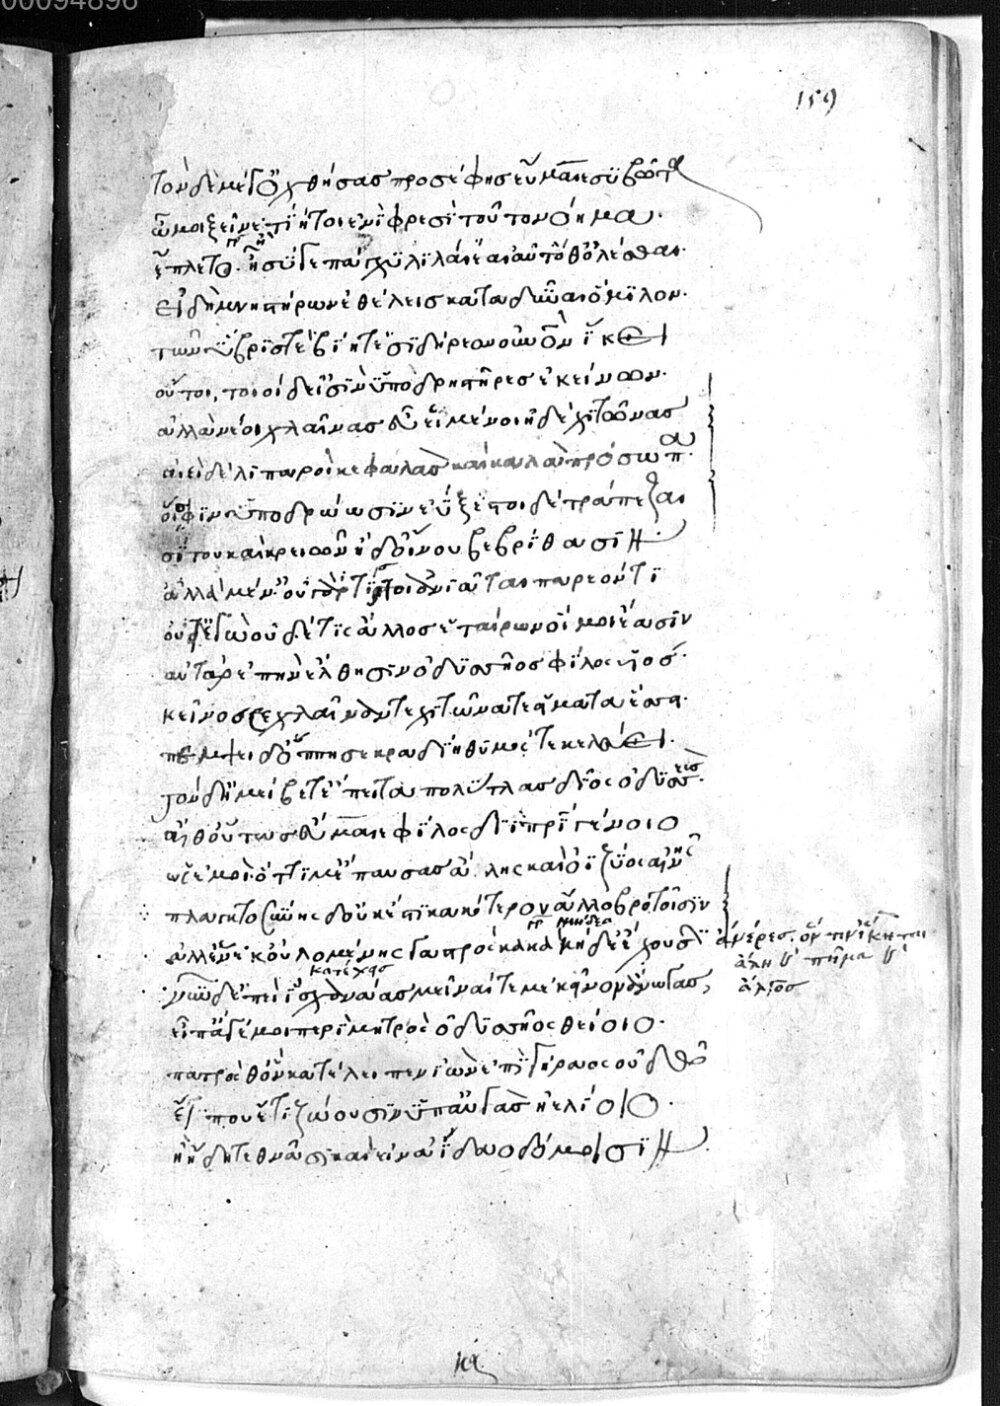 00094896
159
Τὸν δὲ μέγ' ὀχθήσας προσέφης εὔμαιε συβῶτα
ὤμοι ξεῖνε· τί ἤ τοι ἐνὶ φρεσὶ τοῦτο νόημα·
ἔπλετο· ἦ σύ γε πάγχυ λιλαίεαι αὐτόθ' ὀλέσθαι·
εἰ δὴ μνηστήρων ἐθέλεις καταδῦναι ὅμιλον·
τῶν ὕβρις τε βίη τε σιδήρεον οὐρανὸν ἵκει
οὔ τοι, τοιοίδ' εἰσὶν ὑποδρηστῆρες ἐκείνων·
ἀλλὰ νέοι χλαίνας εὖ εἱμένοι ἠδὲ χιτῶνας
αἰεὶ δὲ λιπαροὶ κεφαλὰς καὶ καλὰ πρόσωπα·
οἵ σφιν ὑποδρώωσιν ἐΰξεστοι δὲ τράπεζαι
σίτου καὶ κρειῶν ἠδ' οἴνου βεβρίθασιν·
ἀλλὰ μέν' οὐ γάρ τίς τοι ἀνιᾶται παρεόντι
οὔτ' ἐγὼ οὐδέ τις ἄλλος ἑταίρων οἵ μοι ἔασιν
αὐτὰρ ἐπὴν ἔλθησιν ὀδυσσῆος φίλος υἱός·
κεῖνός σε χλαῖνάν τε χιτῶνά τε εἵματα ἕσσει·
πέμψει δ' ὅππη σε κραδίη θυμός τε κελεύει·
τὸν δ' ἠμείβετ' ἔπειτα πολύτλας δῖος ὀδυσσεύς·
αἴθ' οὕτως εὔμαιε φίλος διὶ πατρὶ γένοιο
ὡς ἐμοὶ ὅττι μ' ἔπαυσας ἄλης καὶ ὀϊζύος αἰνῆς
πλαγκτοσύνης δ' οὐκ ἔστι κακώτερον ἄλλο βροτοῖσιν
ἀλλ' ἕνεκ' οὐλομένης γαστρὸς κακὰ κήδε' ἔχουσιν ἀνέρες. ὅν τιν' ἵκηται
ἄλη καὶ πῆμα καὶ
ἄλγος
κατέχας
νῦν δ' ἐπεὶ ἰσχανάας μεῖναί τέ με κεῖνον ἄνωγας,
εἴπ' ἄγε μοι περὶ μητρὸς ὀδυσσῆος θείοιο·
πατρός θ' ὃν κατέλειπεν ἰὼν ἐπὶ γήραος οὐδῷ
εἴ που ἔτι ζώουσιν ὑπ' αὐγὰς ἠελίοιο·
ἢ ἤδη τεθνᾶσι καὶ εἰν ἀΐδαο δόμοισιν·